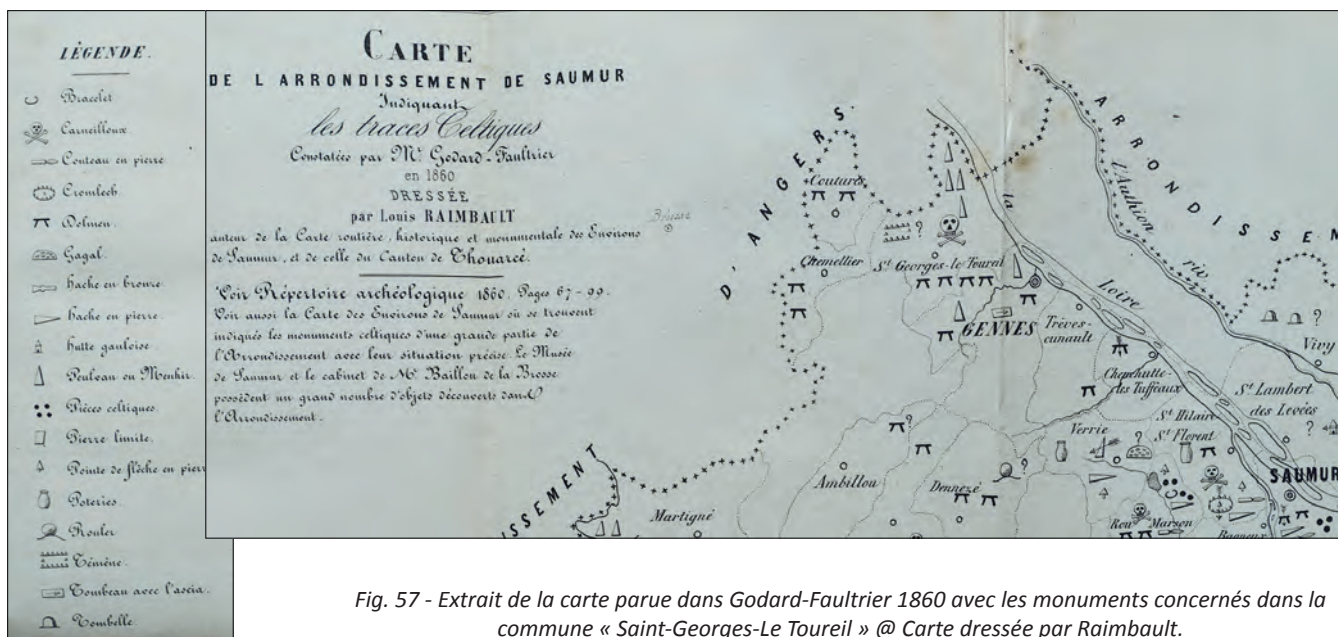 LÉGENDE.
Bracelet
Carneilloux
Couteau en pierre
Cromlech
Dolmen.
Gagal.
hache en bronze
hache en pierre.
hutte gauloise.
Peulvan ou Menhir.
Pièces celtiques.
Pierre limite.
Pointe de flèche en pierr
Poteries.
Rouler
Témène.
Tombeau avec l'ascia.
Tombelle.
CARTE
DE L ARRONDISSEMENT DE SAUMUR
Indiquant
les traces Celtiques
Constatées par Mr. Godard-Faultrier
en 1860
DRESSÉE
par Louis RAIMBAULT
auteur de la Carte routière, historique et monumentale des Environs
de Saumur, et de celle du Canton de Thouarcé.
Voir Répertoire archéologique 1860. Pages 67-99.
Voir aussi la Carte des Environs de Saumur où se trouvent
indiqués les monuments celtiques d'une grande partie de
l'Arrondissement avec leur situation précise. Le Musée
de Saumur et le cabinet de Mr. Baillou de la Brosse
possèdent un grand nombre d'objets découverts dans
l'Arrondissement.
D'ANGERS.
ARRONDISSEM
l'Authion riv
Coutures
?
Chemellier
St Georges-le Toureil
la Loire
GENNES
Trèves-
cunault
? Vivy
Chenehutte-
les Tuffeaux
St Lambert
des Levées
St Hilaire
St Florent
?
Verrie
?
?
?
SAUMUR
Ambillou
Dennezé
ISSEMENT
Martigné
Rou Marson
Bagneux
Fig. 57 - Extrait de la carte parue dans Godard-Faultrier 1860 avec les monuments concernés dans la
commune « Saint-Georges-Le Toureil » @ Carte dressée par Raimbault.